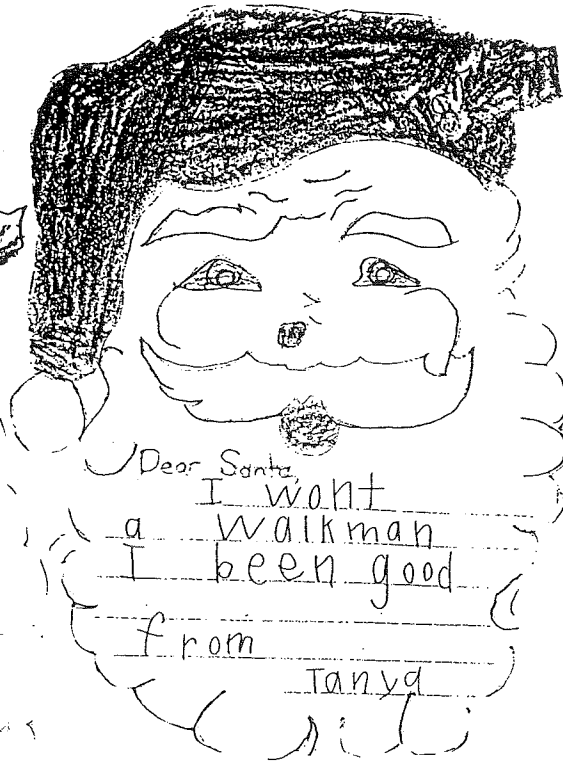 Dear Santa,
I wont
a walkman
I been good
from
Tanya